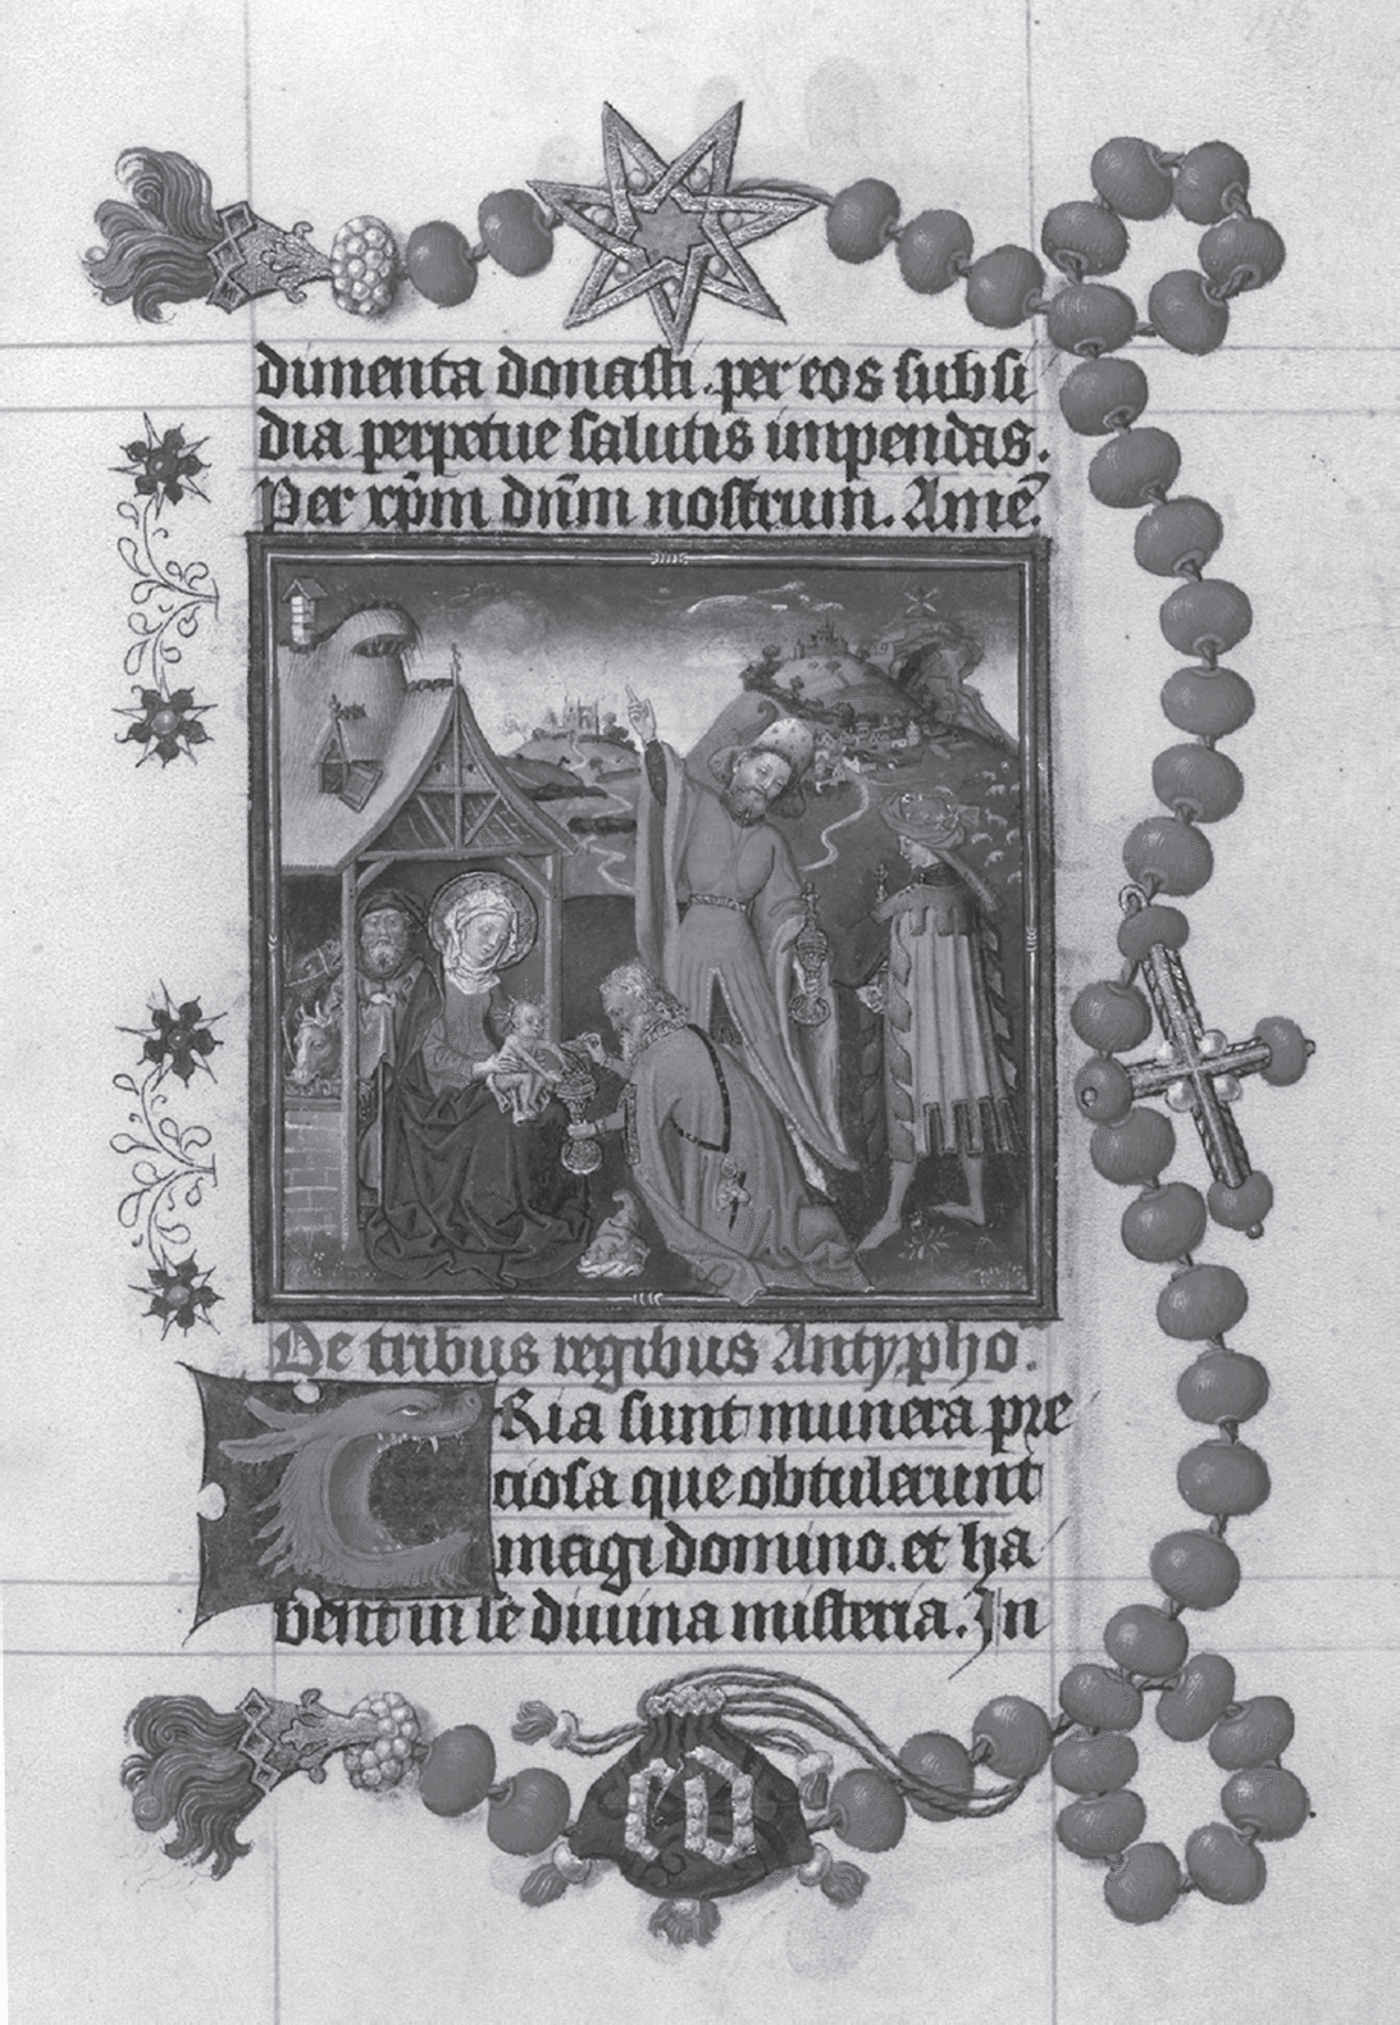 dimenta donasti. per eos subsi
dia perpetue salutis impendas.
Per xp̄m dn̄m nostrum. Amē.
De tribus regibus Antypho.
TRia sunt munera pre
ciosa que obtulerunt
magi domino. et ha
bent in se diuina misteria. In
CD